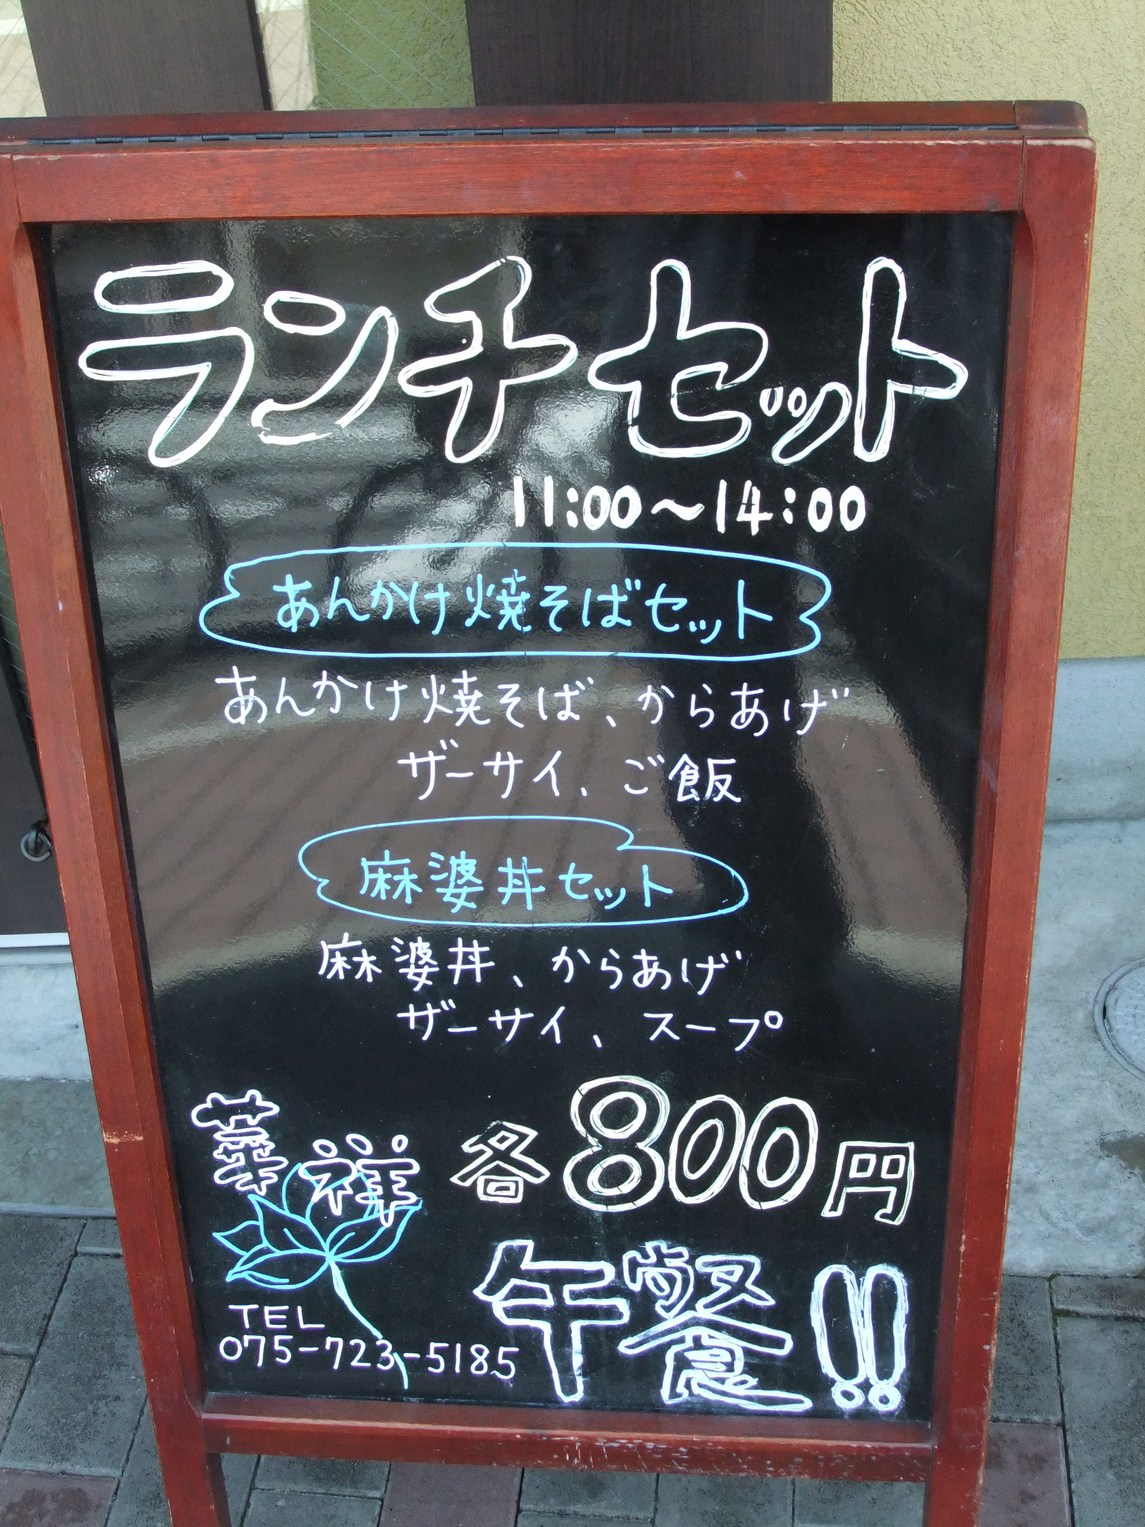 ランチセット
11:00～14:00
あんかけ焼そばセット
あんかけ焼そば、からあげ
ザーサイ、ご飯
麻婆丼セット
麻婆丼、からあげ
ザーサイ、スープ
華祥
各800円
午餐!!
TEL
075-723-5185